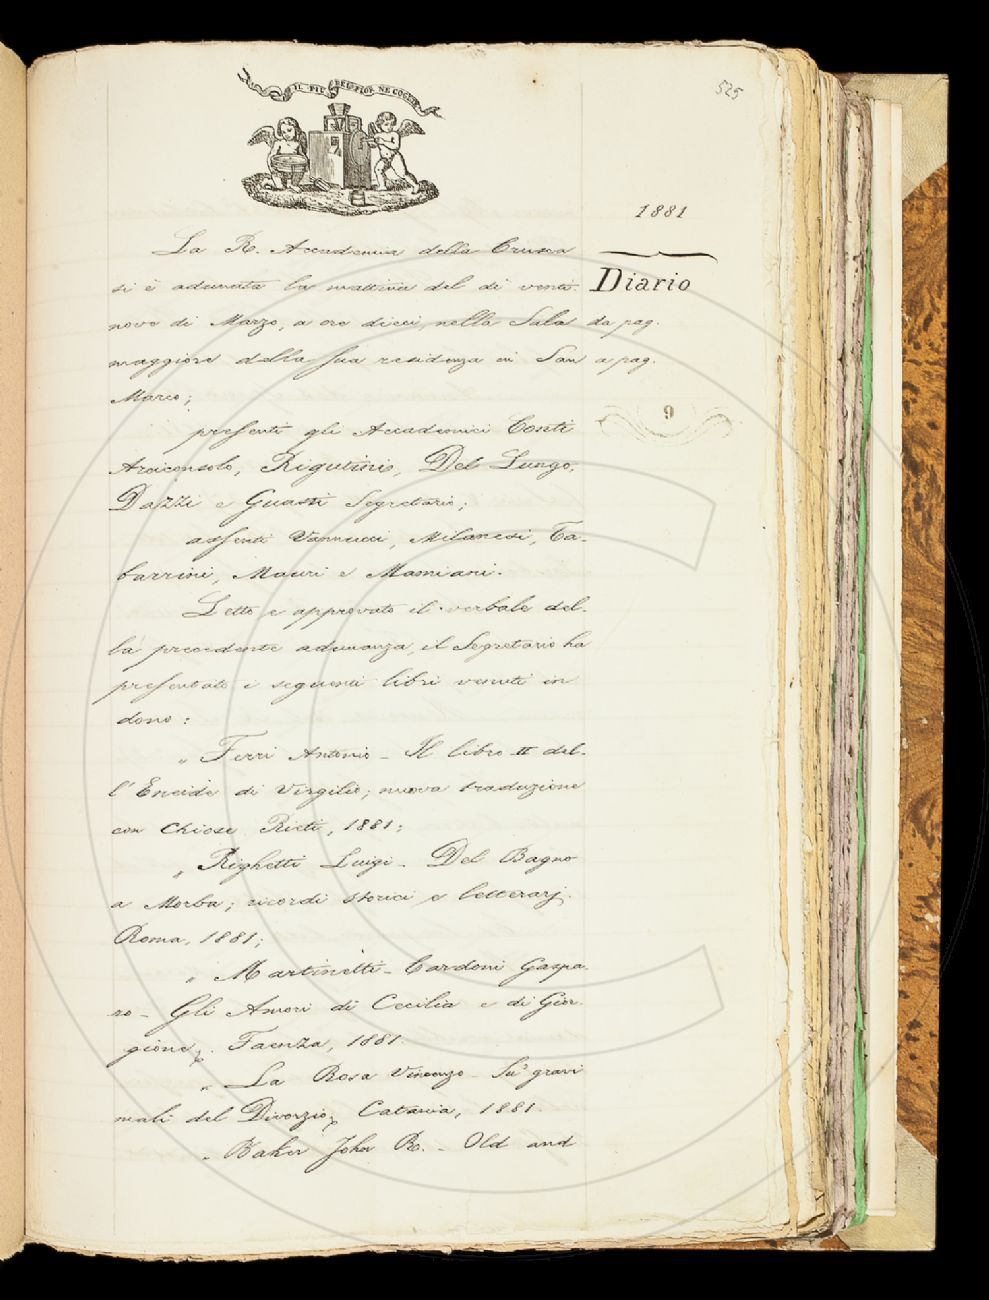 IL PIÙ BEL FIOR NE COGLIE
525
1881
Diario
da pag.
a pag.
9
La R. Accademia della Crusca
si è adunata la mattina del dì venti-
nove di Marzo, a ore dieci, nella Sala
maggiore della sua residenza in San
Marco;
presenti gli Accademici Conti
Arciconsolo, Rigutini, Del Lungo,
Dazzi e Guasti Segretario;
assenti Vannucci, Milanesi, Ta-
barrini, Mauri e Mamiani.
Letto e approvato il verbale del-
la precedente adunanza, il Segretario ha
presentato i seguenti libri venuti in
dono:
„ Ferri Antonio - Il libro II del-
l'Eneide di Virgilio; nuova traduzione
con chiose. Rieti, 1881;
„ Righetti Luigi - Del Bagno
a Morba; ricordi storici e letterarj.
Roma, 1881;
„ Martinetti-Cardoni Gaspa-
ro - Gli Amori di Cecilia e di Gior-
gione. Faenza, 1881.
„ La Rosa Vincenzo - Su' gravi
mali del Divorzio. Catania, 1881.
„ Baker John R. - Old and